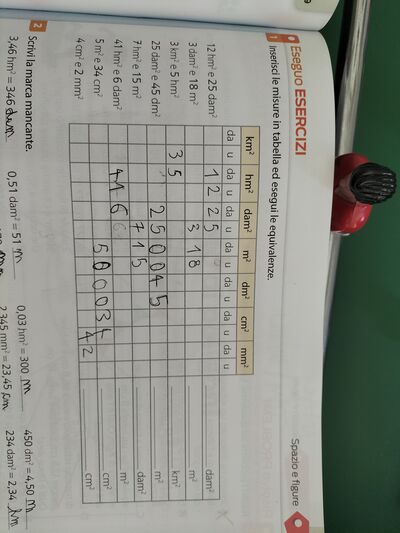 Spazio e figure
Eseguo ESERCIZI
1 Inserisci le misure in tabella ed esegui le equivalenze.
km² hm² dam² m² dm² cm² mm²
da u da u da u da u da u da u da u
12 hm² e 25 dam² 1 2 2 5 dam²
3 dam² e 18 m² 3 1 8 m²
3 km² e 5 hm² 3 5 km²
25 dam² e 45 dm² 2 5 0 0 4 5 m²
7 hm² e 15 m² 7 1 5 dam²
41 hm² e 6 dam² 4 1 6 m²
5 m² e 34 cm² 5 0 0 0 3 4 cm²
4 cm² e 2 mm² 4 2 cm²
2 Scrivi la marca mancante.
3,46 hm² = 346 dam 0,51 dam² = 51 m 0,03 hm² = 300 m 450 dm² = 4,50 m
2345 mm² = 23,45 234 dam² = 2,34